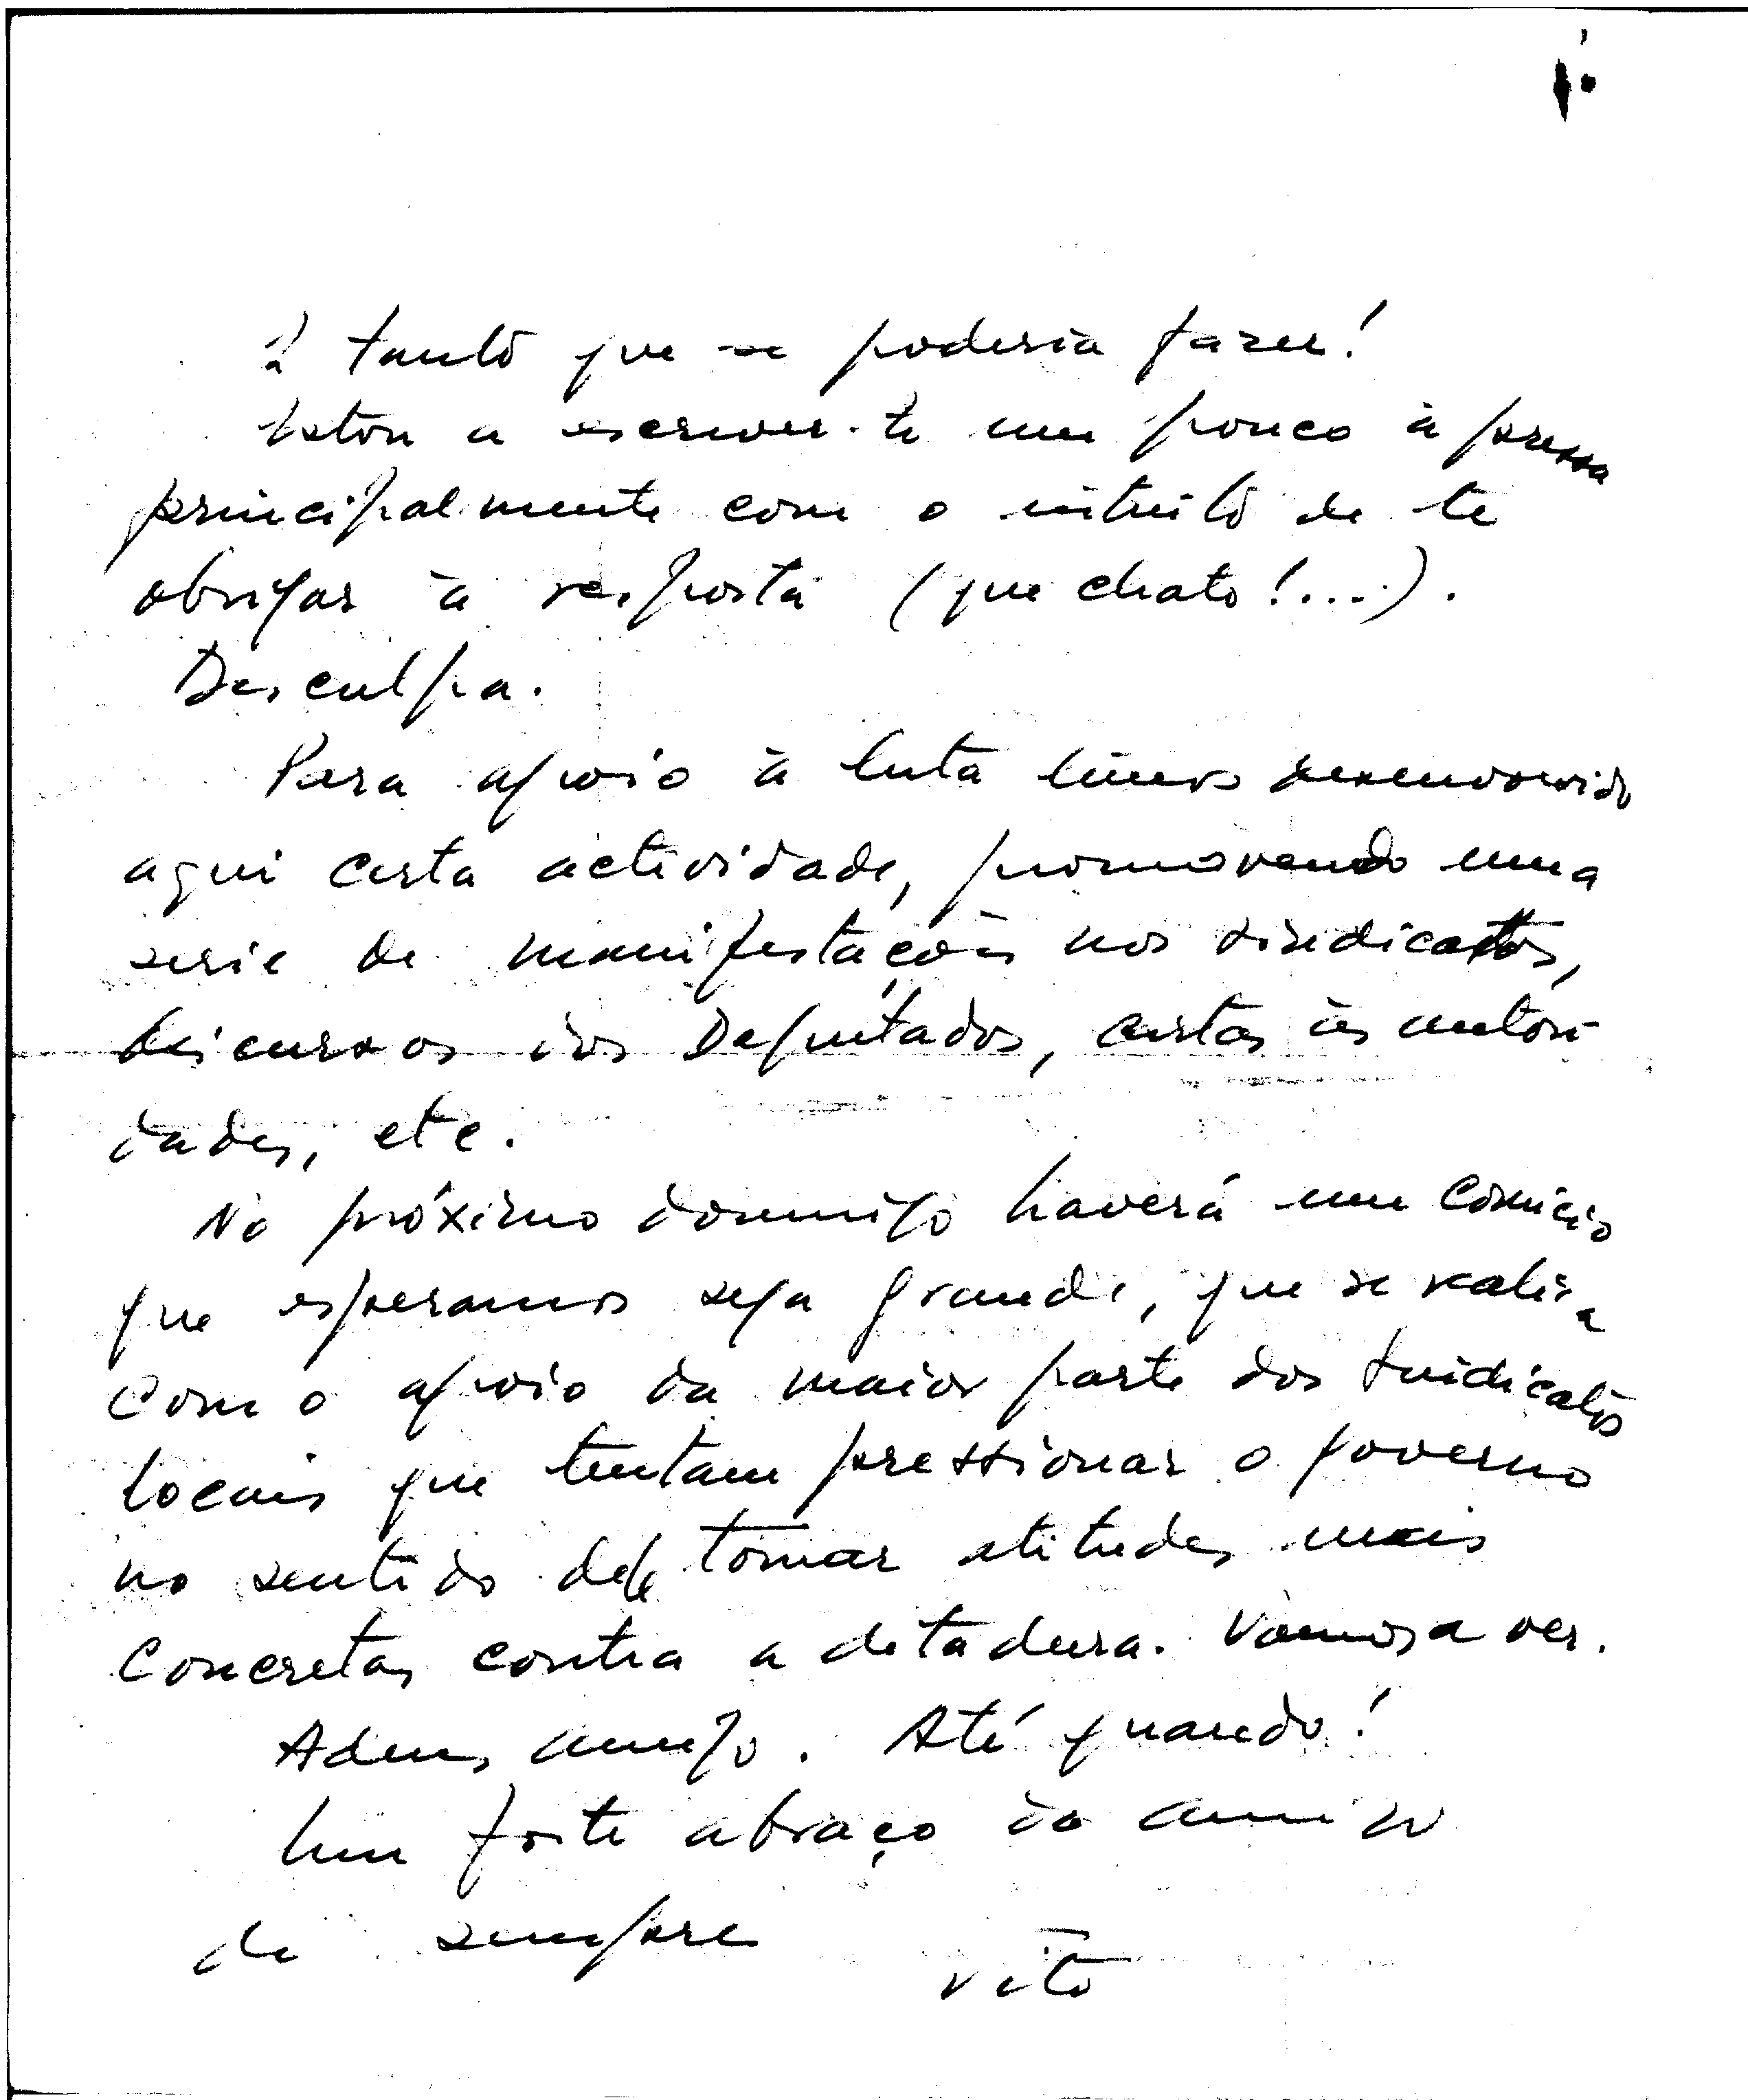 E tanto que se poderia fazer!
Estou a escrever-te um pouco à pressa
principalmente com o intuito de te
obrigar à resposta (que chato!....).
Desculpa.
Para apoio à luta temos desenvolvido
aqui certa actividade, promovendo uma
serie de manifestações nos sindicatos,
discursos dos Deputados, cartas às autori-
dades, etc.
No próximo domingo haverá um comício
que esperamos seja grande, que se realiza
com o apoio da maior parte dos sindicatos
locais que tentam pressionar o governo
no sentido dele tomar atitudes mais
concretas contra a ditadura. Vamos a ver.
Adeus, amigo. Até quando!
Um forte abraço do amigo
de sempre
Vito